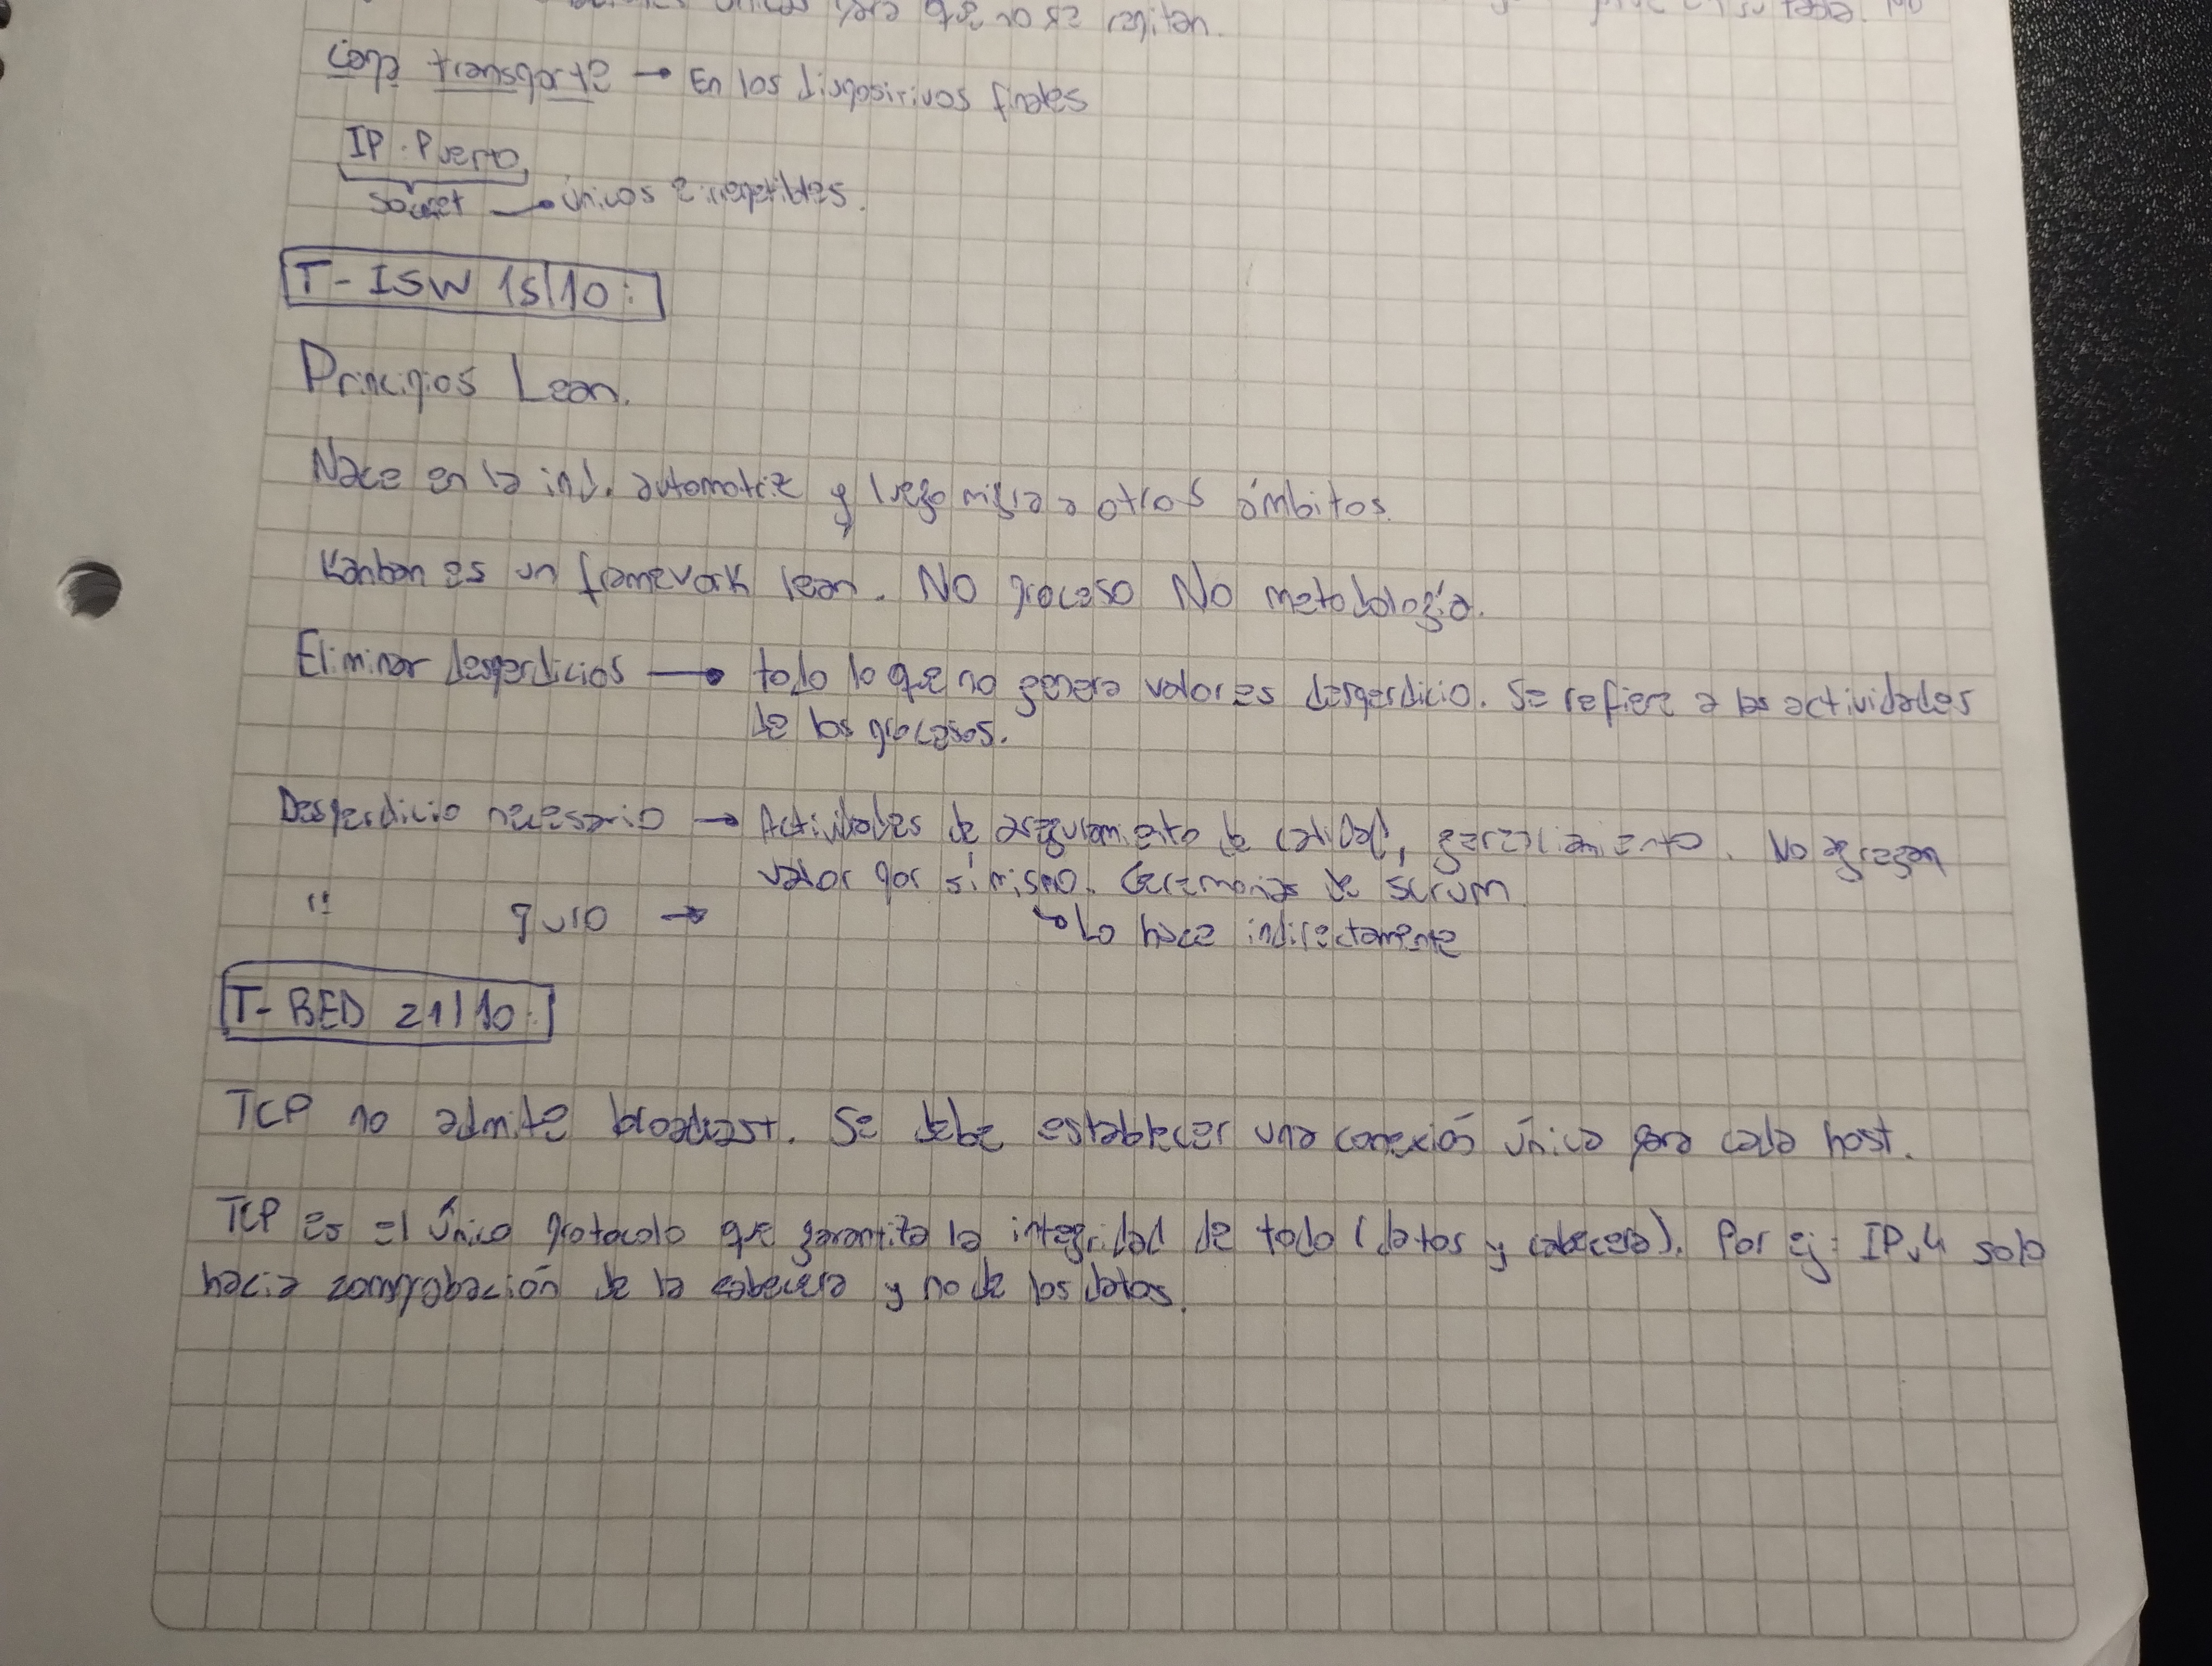 únicas para que no se repitan.
en su tabla. No
Capa transporte → En los dispositivos finales
IP : Puerto
socket → únicos e irrepetibles.
T- ISW 15/10:
Principios Lean.
Nace en la ind. automotriz y luego migra a otros ámbitos.
Kanban es un framework lean. NO proceso NO metodología.
Eliminar desperdicios → todo lo que no genera valor es desperdicio. Se refiere a las actividades
de los procesos.
Desperdicio necesario → Actividades de aseguramiento de calidad, gerenciamiento. No agregan
valor por si mismo. Ceremonias de scrum
" puro → ↳ Lo hace indirectamente
T- RED 21/10:
TCP no admite broadcast. Se debe establecer una conexión única para cada host.
TCP es el único protocolo que garantiza la integridad de todo (datos y cabecera). Por ej: IPv4 solo
hacia comprobación de la cabecera y no de los datos.